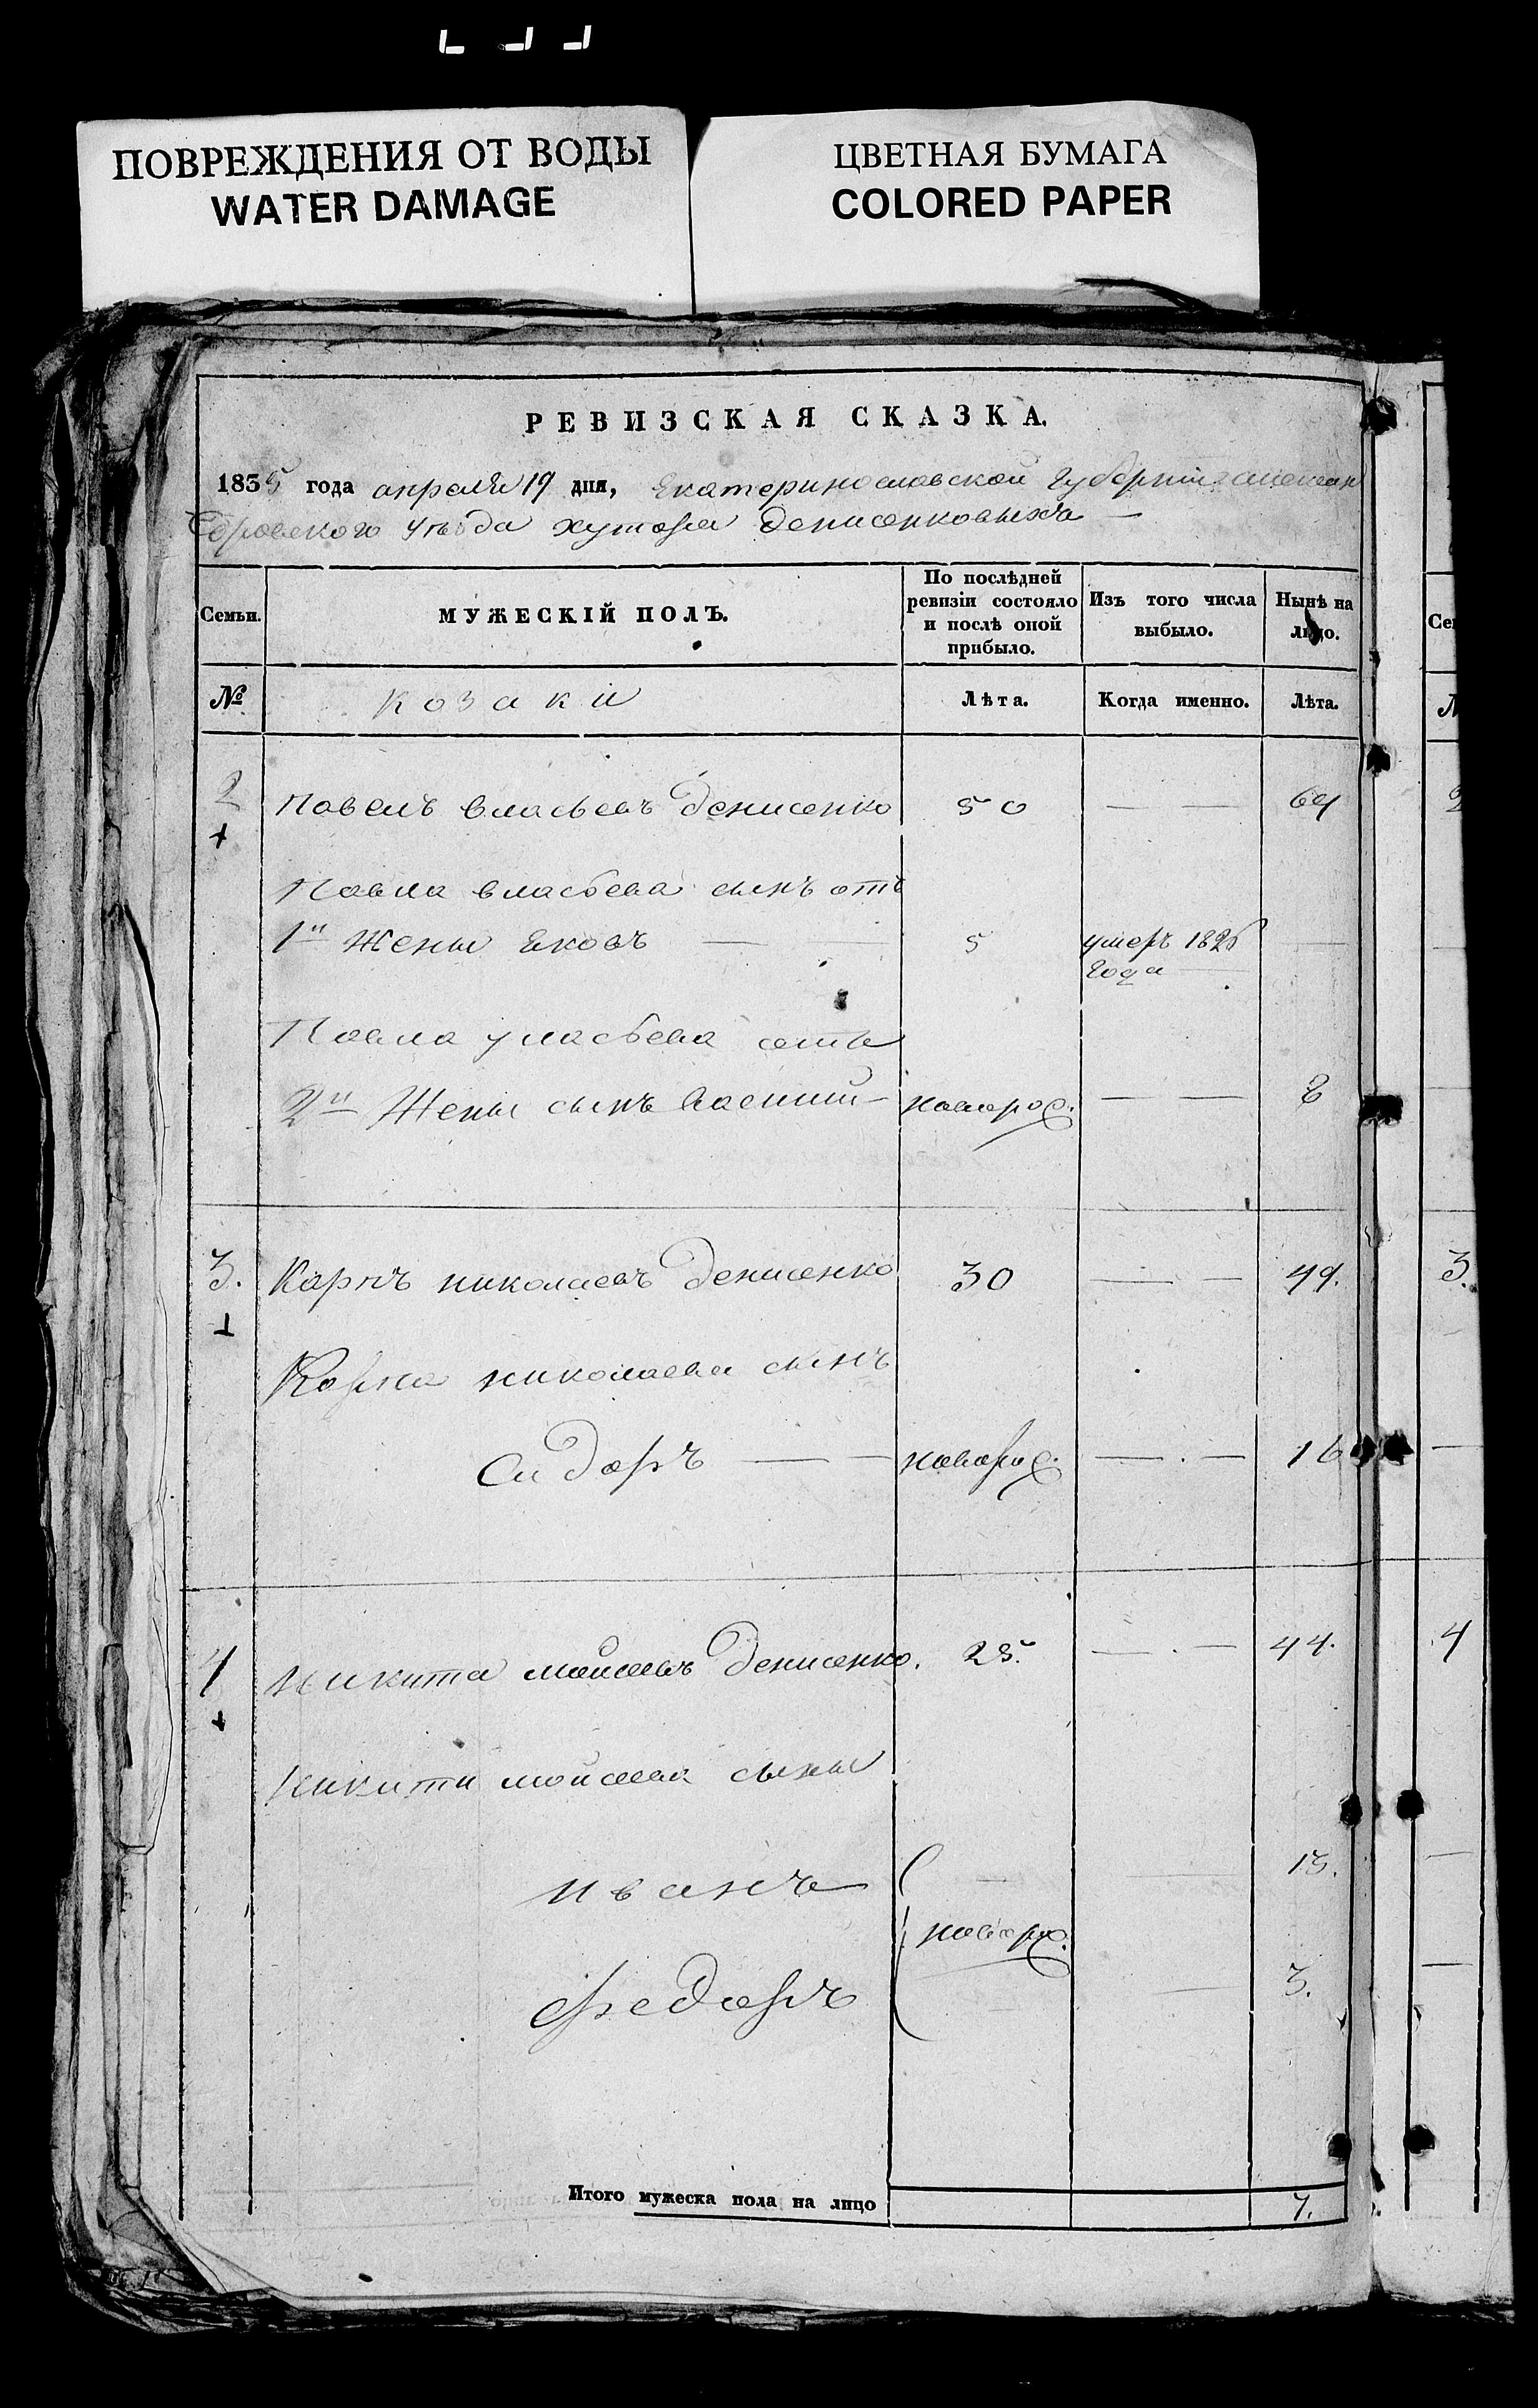 ПОВРЕЖДЕНИЯ ОТ ВОДЫ
WATER DAMAGE
ЦВЕТНАЯ БУМАГА
COLORED PAPER
РЕВИЗСКАЯ СКАЗКА.
1835 года апреля 19 дня, Екатеринославской Губернии алексан
дровского уезда хутора денисенковыхъ —
Семьи. МУЖЕСКІЙ ПОЛЪ. По послѣдней ревизіи состояло и послѣ оной прибыло. Изъ того числа выбыло. Нынѣ на лицо.
№ козаки Лѣта. Когда именно. Лѣта.
2 Павелъ власьевъ денисенко 50 — — 69
Павла власьева сынъ отъ
1й жены Яковъ — 5 умеръ 1826 —
года
Павла уласьева отъ
2й Жены сынъ Василий — новорож. — — 8
3. Карпъ николаевъ денисенко 30 — — 49.
Карпа николаева сынъ
Сидоръ — — новорож. — — 16
4 Никита моисеевъ денисенко. 25. — — 44.
Никити моисеева сыны
иванъ — — 13.
новорж.
федоръ — 3.
Итого мужеска пола на лицо 7.
3.
4